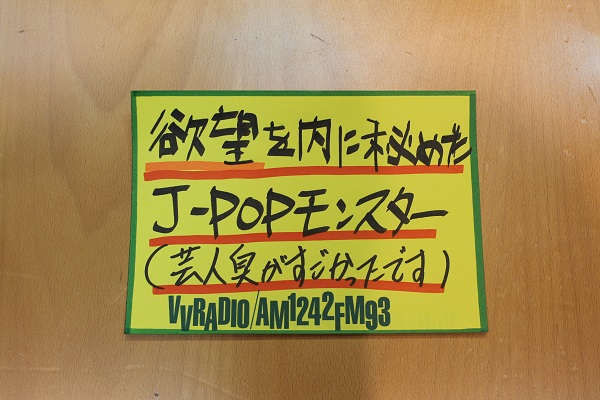 欲望を内に秘めた
J-POPモンスター
(芸人臭がすごかったです)
VVRADIO/AM1242FM93